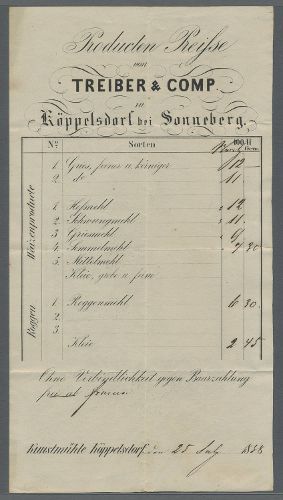 Producten Preisse
von
TREIBER & COMP.
zu
Köppelsdorf bei Sonneberg.
No. Sorten 100 ℔
Weizenproducte
1. Gries, feiner u. körniger 12
2. do 11
1. Hefmehl 12
2. Schwungmehl 11
3. Griesmehl 9
4. Semmelmehl 7 30
5. Mittelmehl
Kleie, grobe u. feine
Roggen
1. Roggenmehl 6 30
2.
3.
Kleie 2 45
Ohne Verbindlichkeit gegen Baarzahlung
Kunstmühle Köppelsdorf den 25 July 1858